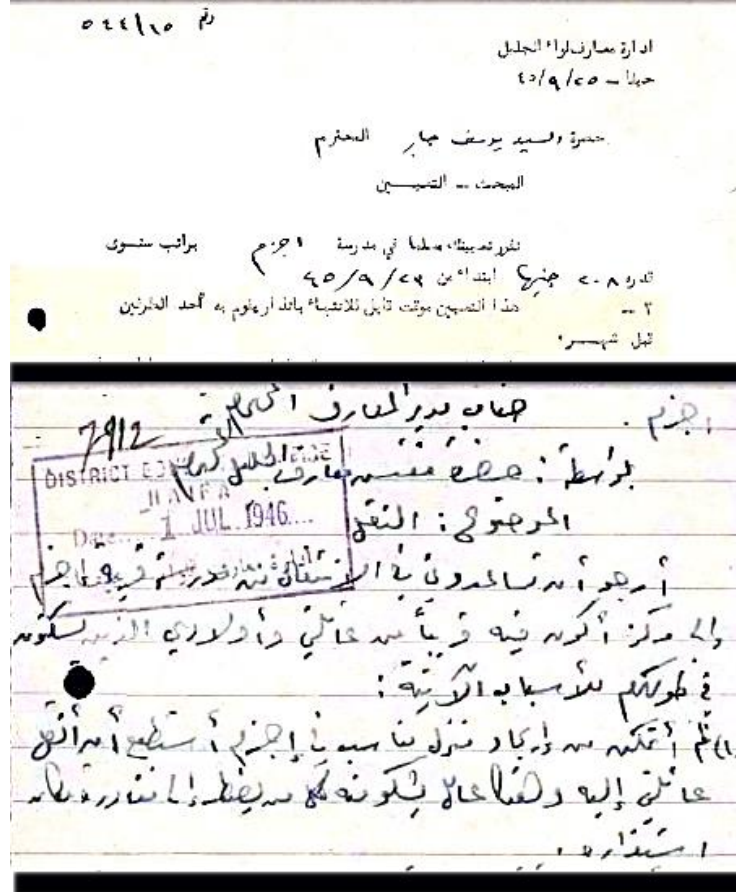 رقم ٥٤٤/١٥
ادارة معارف لواء الجليل
حيفا – ٤٥/٩/٢٥
حضرة السيد يوسف جابر المحترم
المبحث – التعيين
تقرر تعيينك معلما في مدرسة اجزم براتب سنوي
قدره ٢٠٨ جنيها ابتداء من ٤٥/٩/٢٣
٢ – هذا التعيين موقت قابل للانتهاء بانذار يقوم به أحد الطرفين
قبل شهر.
اجزم. جناب مدير المعارف المحترم
7912
DISTRICT
HAIFA
Date 1 JUL 1946
بواسطة: حضرة مفتش معارف
الموضوع: النقل
أرجو أن تساعدوني في الانتقال من مدرسة قرية اجزم
إلى مركز أكون فيه قريباً من عائلتي وأولادي الذين يسكنون
في طولكرم للأسباب الآتية:
(١) لم أتمكن من إيجاد منزل مناسب في إجزم أستطيع أن أنقل
عائلتي إليه وهذا عامل يشكو منه كل من يضطر إلى مغادرة مكان